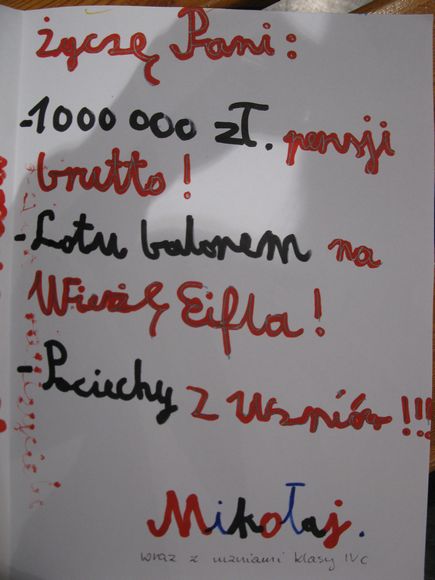 życzę Pani:
-1000 000 zł. pensji
brutto!
-Lotu balonem na
Wieżę Eifla!
-Pociechy z Uczniów!!!
Mikołaj.
wraz z uczniami klasy IVc